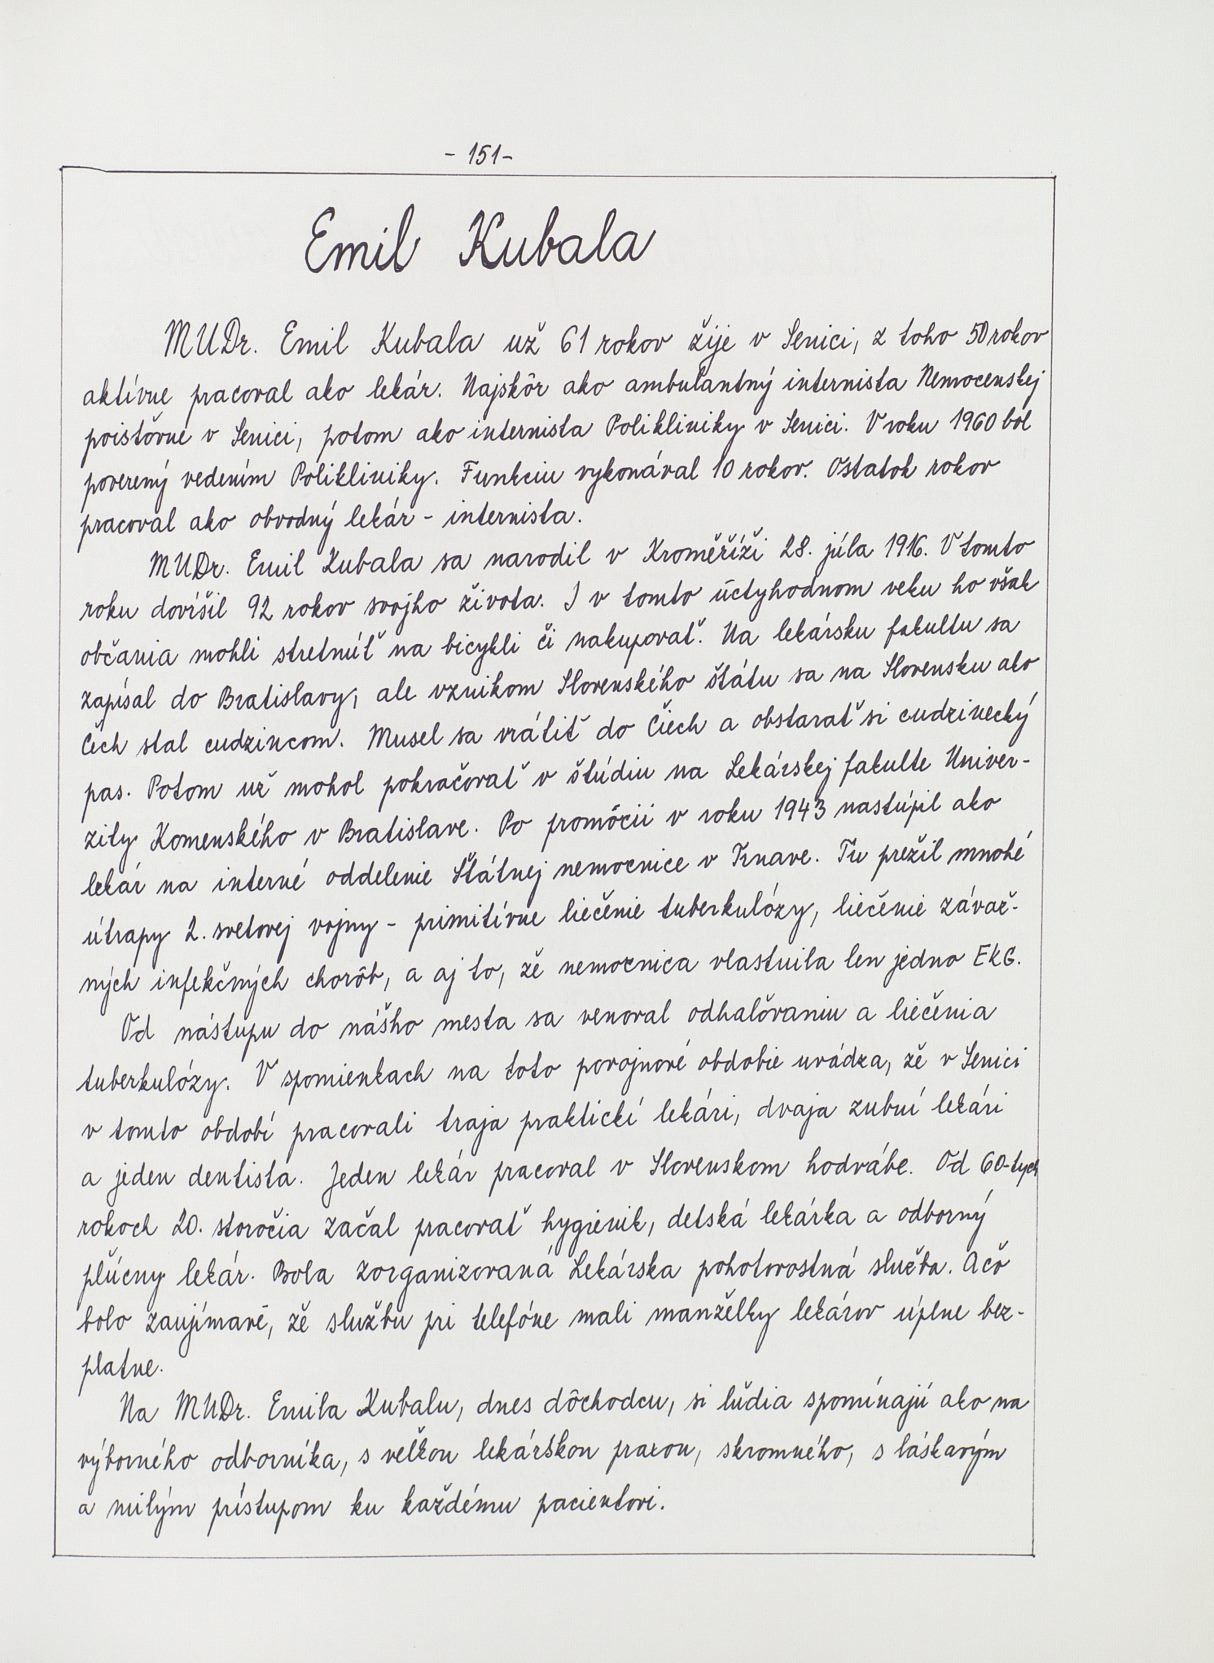 - 151 -
Emil Kubala
MUDr. Emil Kubala už 61 rokov žije v Senici, z toho 50 rokov
aktívne pracoval ako lekár. Najskôr ako ambulantný internista Nemocenskej
poisťovne v Senici, potom ako internista Polikliniky v Senici. V roku 1960 bol
poverený vedením Polikliniky. Funkciu vykonával 10 rokov. Ostatok rokov
pracoval ako obvodný lekár - internista.
MUDr. Emil Kubala sa narodil v Kroměříži 28. júla 1916. V tomto
roku dovŕšil 92 rokov svojho života. I v tomto úctyhodnom veku ho však
občania mohli stretnúť na bicykli či nakupovať. Na lekársku fakultu sa
zapísal do Bratislavy, ale vznikom Slovenského štátu sa na Slovensku ako
Čech stal cudzincom. Musel sa vrátiť do Čiech a obstarať si cudzinecký
pas. Potom už mohol pokračovať v štúdiu na Lekárskej fakulte Univer-
zity Komenského v Bratislave. Po promócii v roku 1943 nastúpil ako
lekár na interné oddelenie Štátnej nemocnice v Trnave. Tu prežil mnohé
útrapy 2. svetovej vojny - primitívne liečenie tuberkulózy, liečenie závaž-
ných infekčných chorôb, a aj to, že nemocnica vlastnila len jedno EKG.
Od nástupu do nášho mesta sa venoval odhaľovaniu a liečenia
tuberkulózy. V spomienkach na toto povojnové obdobie uvádza, že v Senici
v tomto období pracovali traja praktickí lekári, dvaja zubní lekári
a jeden dentista. Jeden lekár pracoval v Slovenskom hodvábe. Od 60-tych
rokoch 20. storočia začal pracovať hygienik, detská lekárka a odborný
pľúcny lekár. Bola zorganizovaná Lekárska pohotovostná služba. A čo
bolo zaujímavé, že službu pri telefóne mali manželky lekárov úplne bez-
platne.
Na MUDr. Emila Kubalu, dnes dôchodcu, si ľudia spomínajú ako na
výborného odborníka, s veľkou lekárskou praxou, skromného, s láskavým
a milým prístupom ku každému pacientovi.